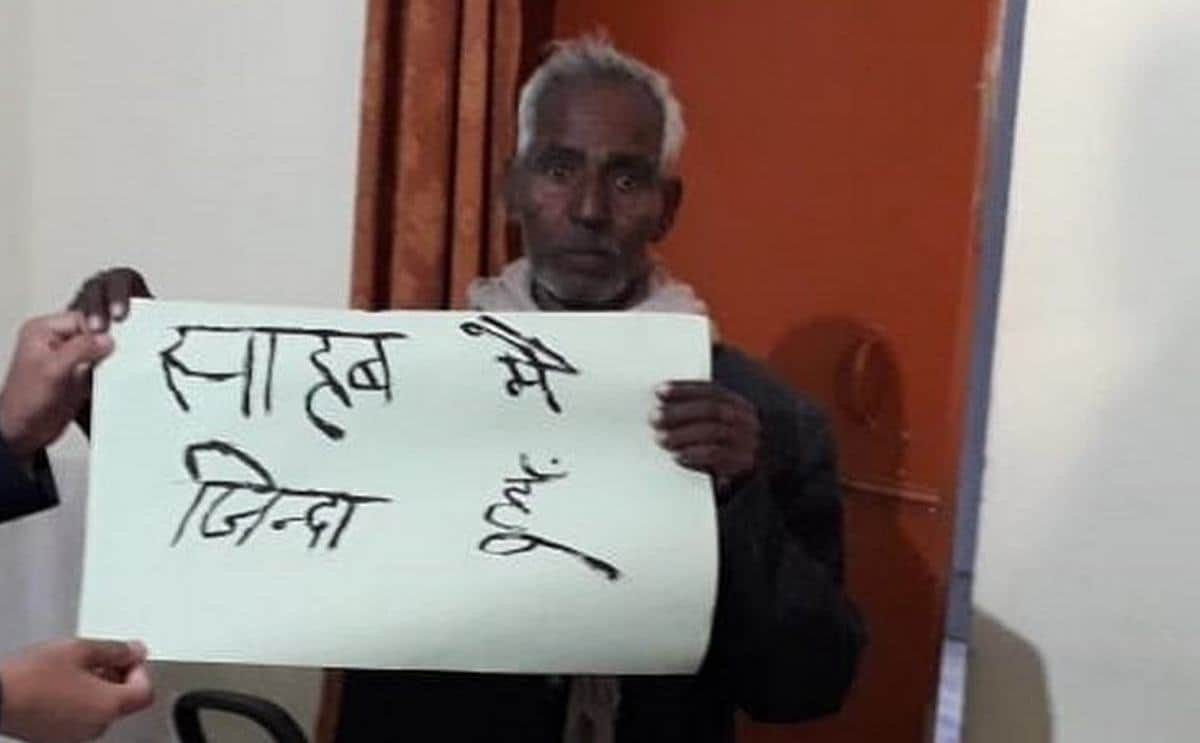 साहब मैं
जिन्दा हूं